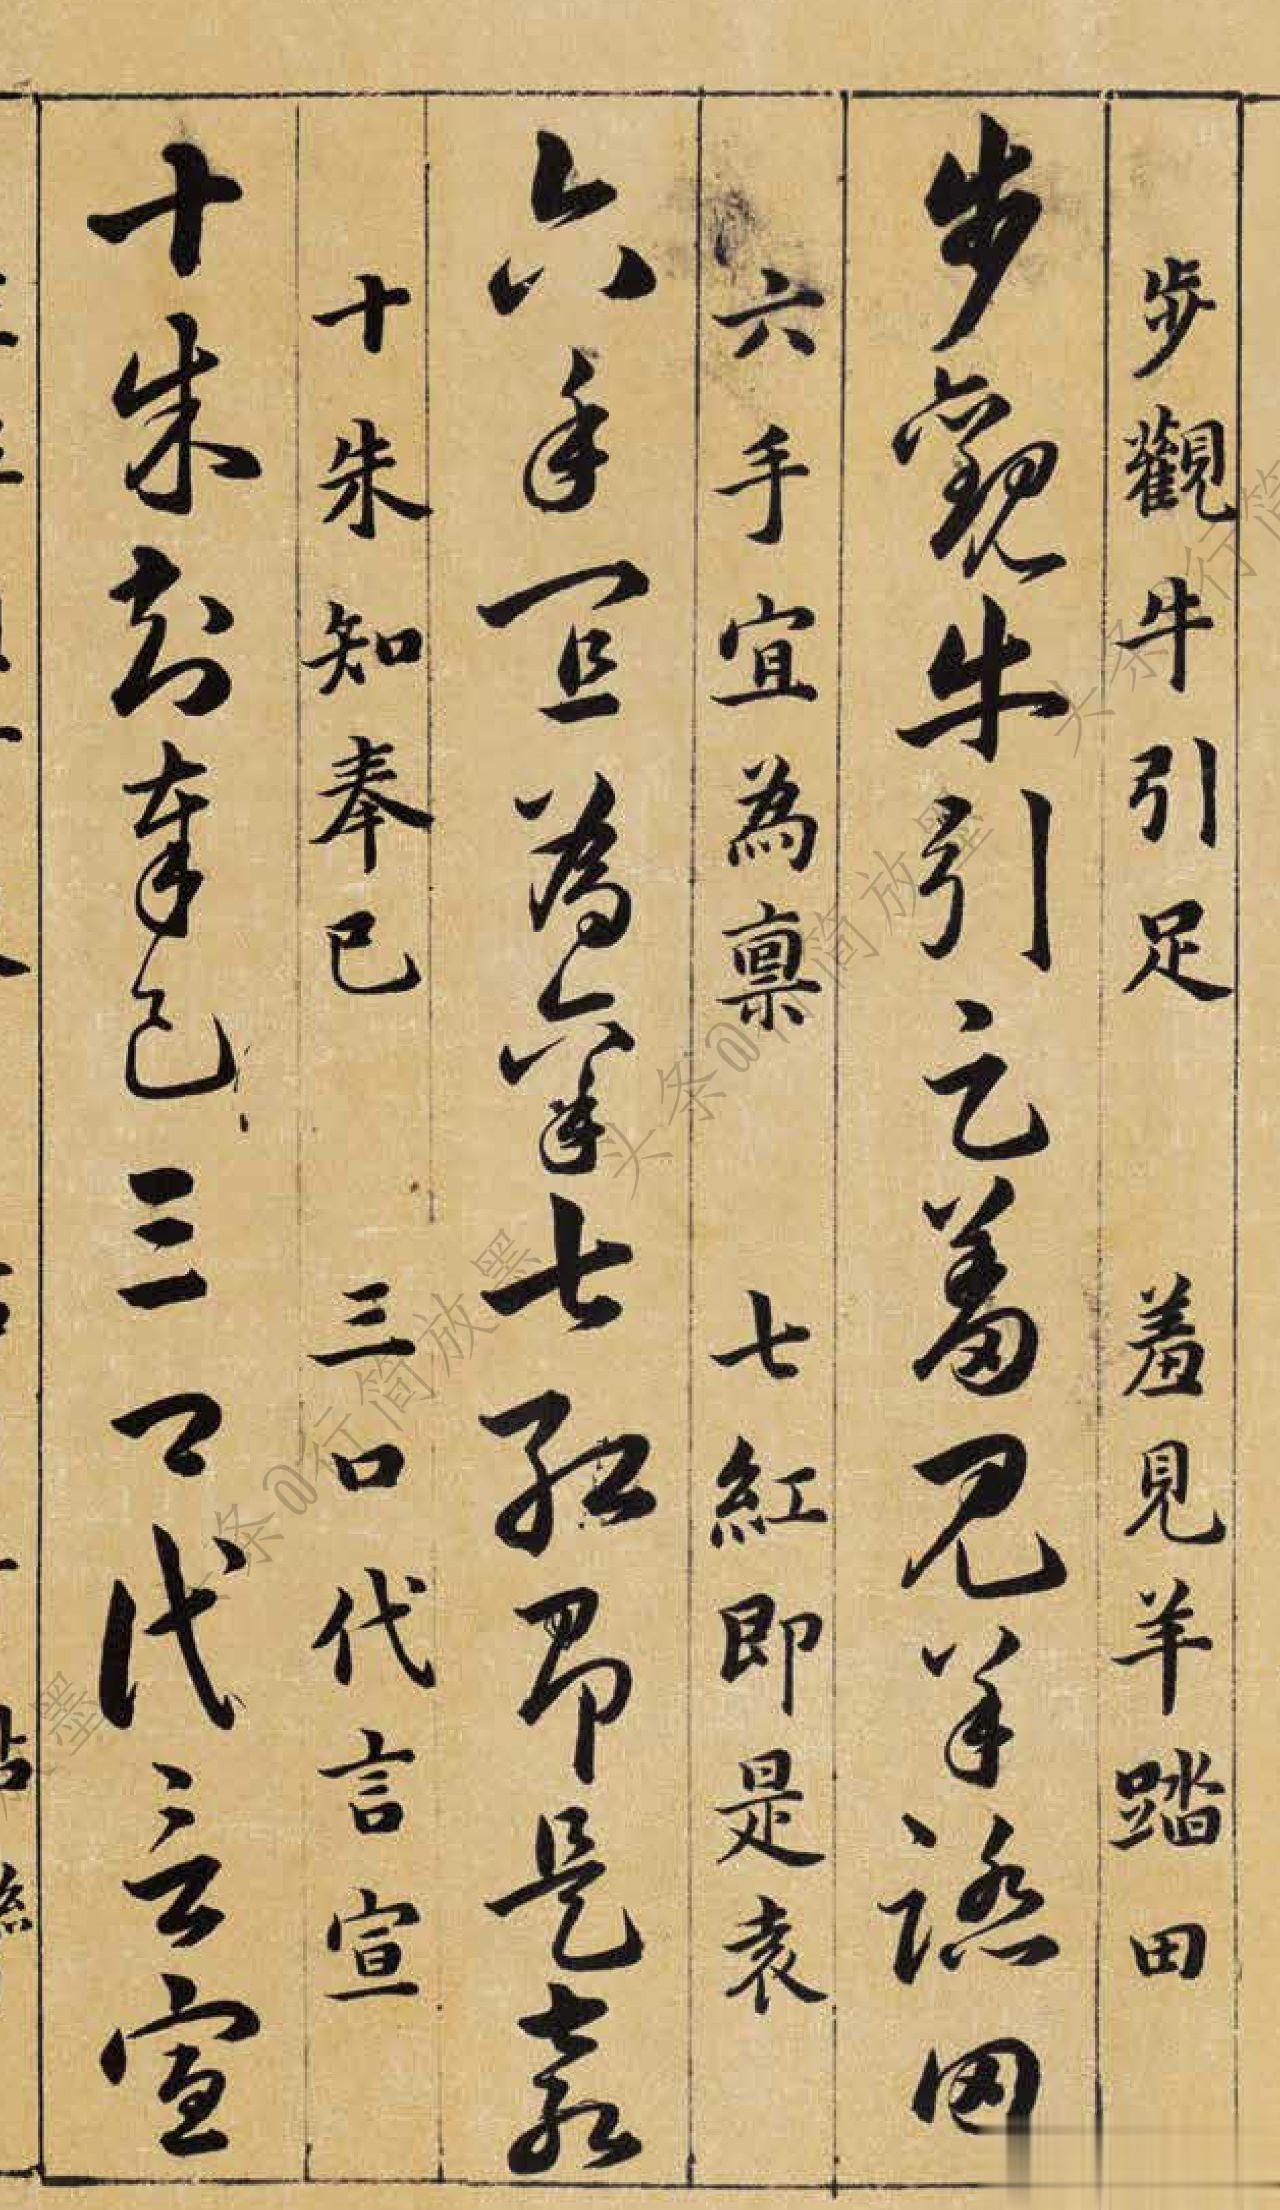 步觀牛引足 羞見羊踏田
步觀牛引足羞見羊踏田
六手宜為稟 七紅即是袁
六手宜為稟七紅即是袁
十朱知奉已 三口代言宣
十朱知奉已三口代言宣
头条@行简放墨